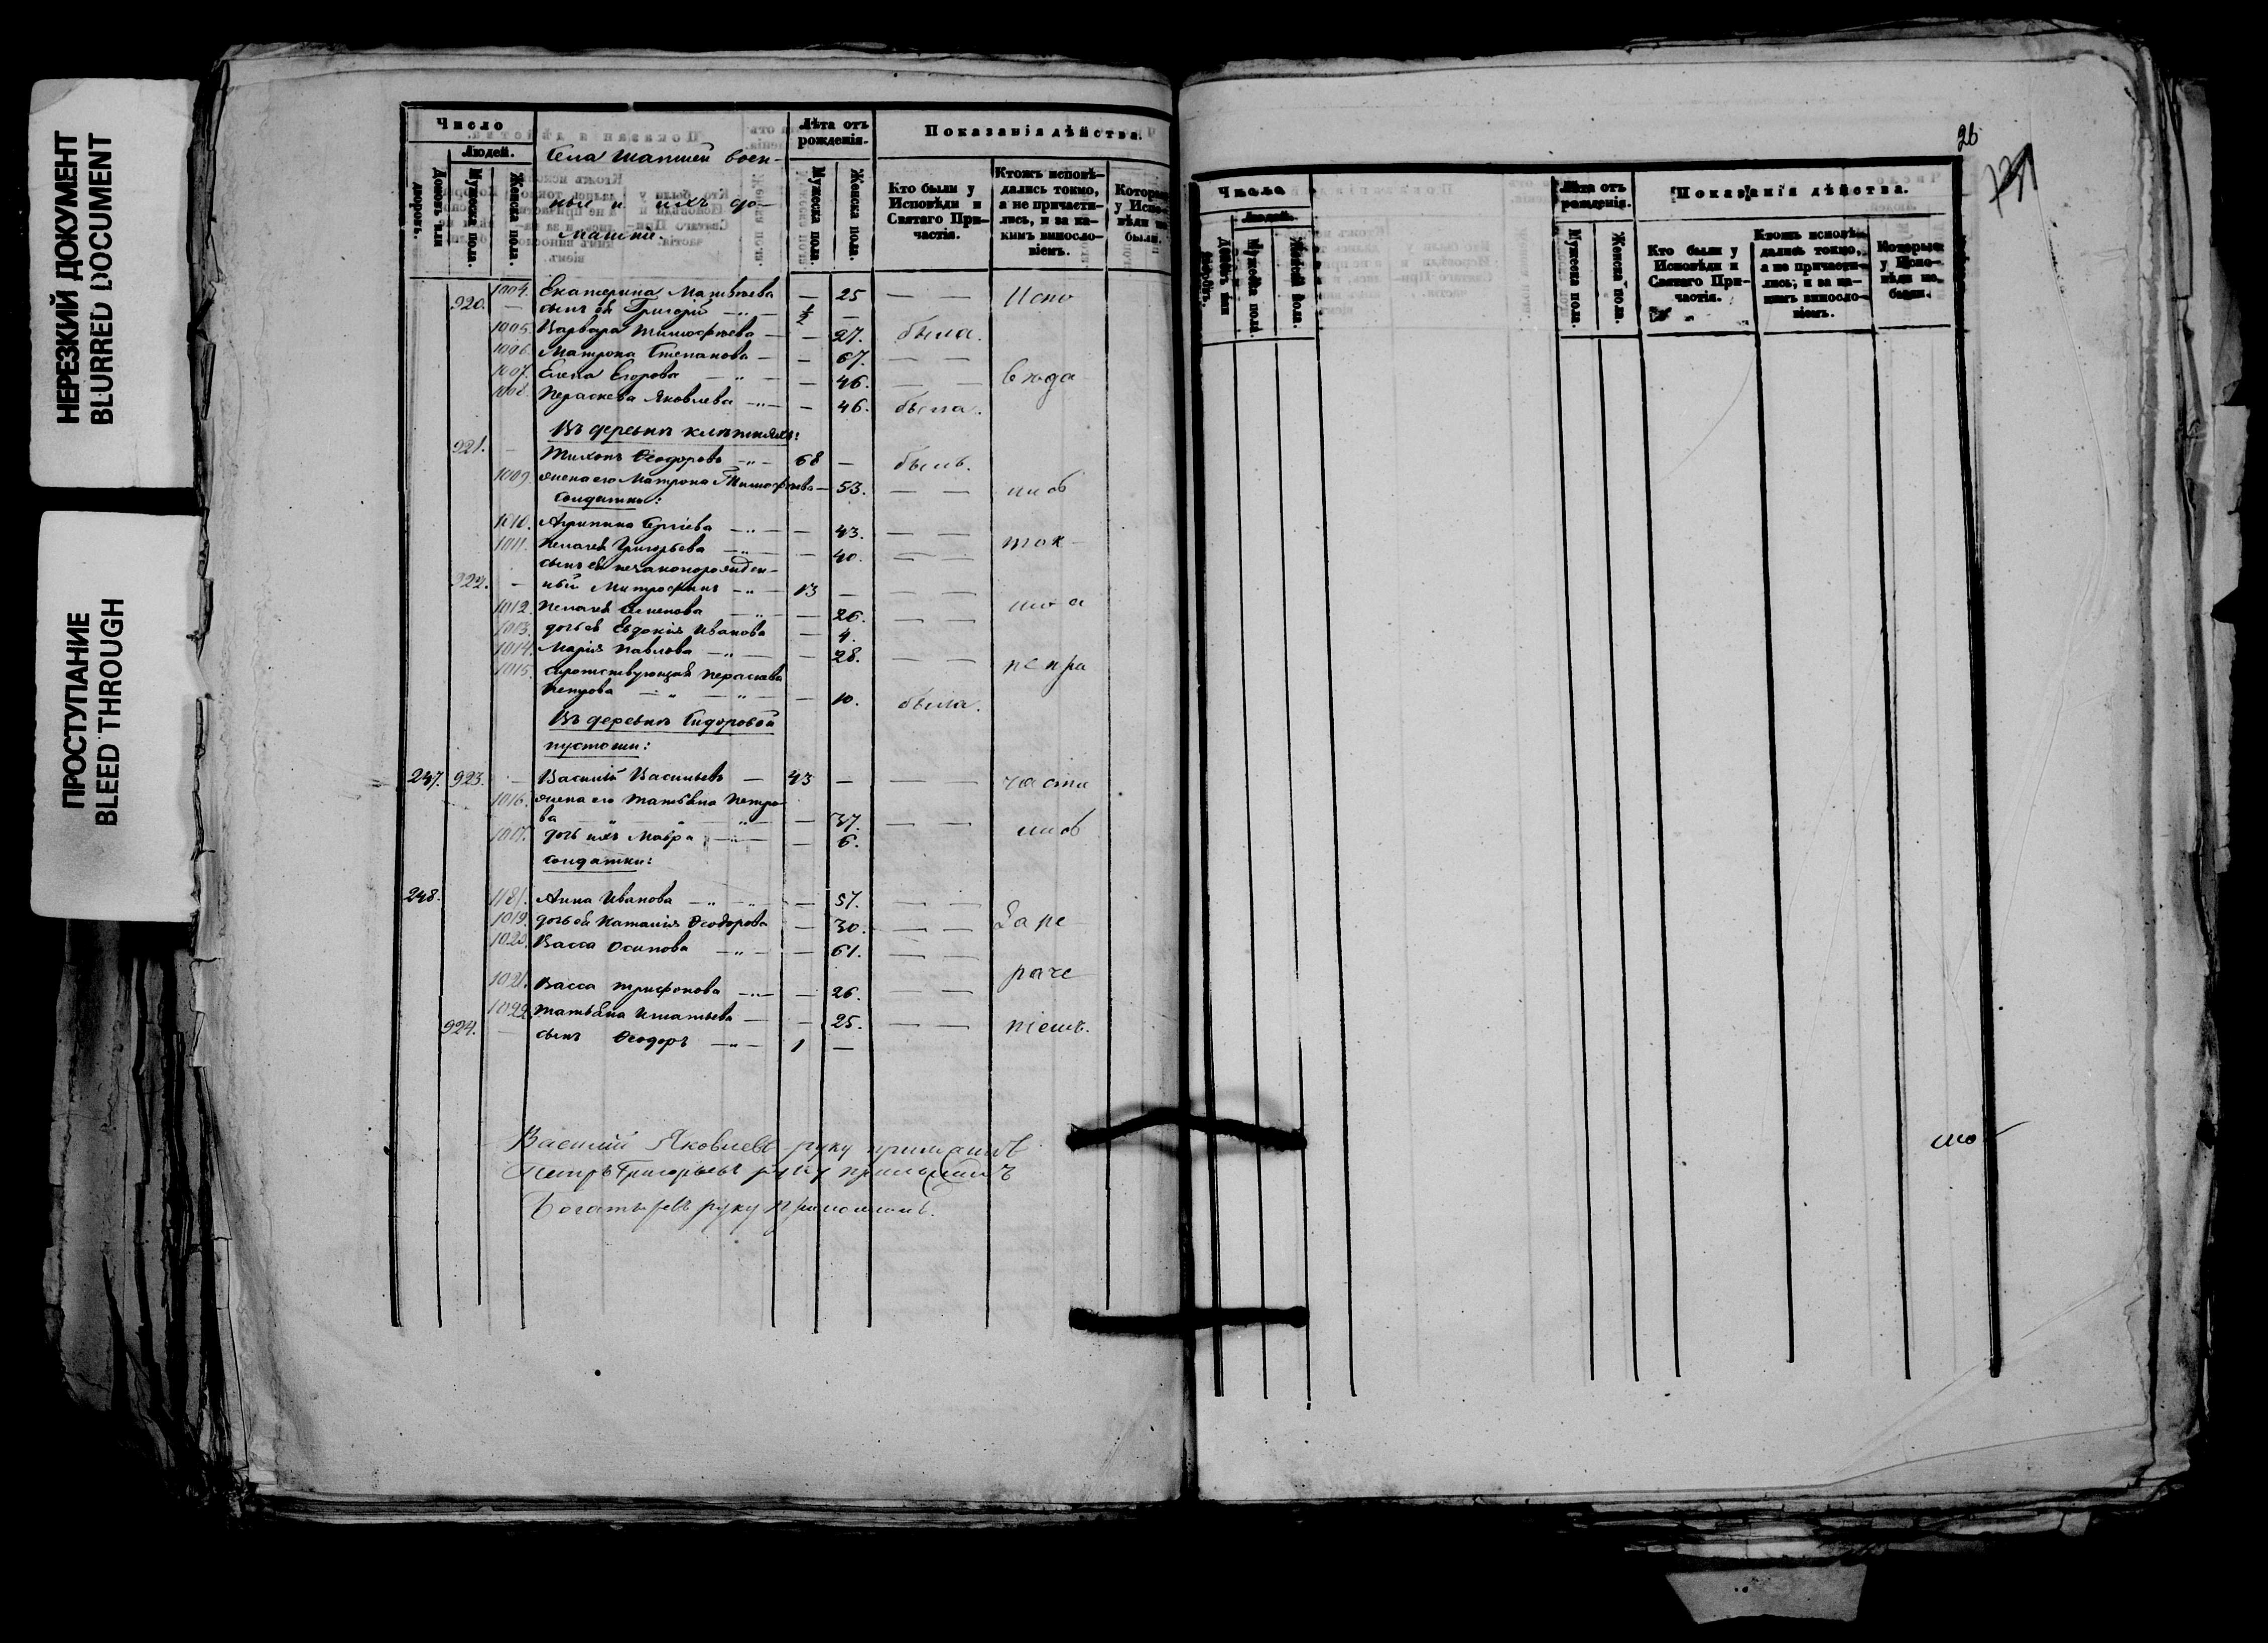 НЕРЕЗКИЙ ДОКУМЕНТ
BLURRED DOCUMENT
ПРОСТУПАНИЕ
BLEED THROUGH
Число
Людей.
Домовъ или дворовъ.
Мужеска пола.
Женска пола.
Села Шапшей воен-
ные и ихъ до-
машни.
Лѣта отъ рожденія.
Мужеска пола.
Женска пола.
Показанія дѣйства.
Кто были у Исповѣди и Святаго При-частія.
Ктожъ исповѣ-дались токмо, а не причасти-лись, и за ка-кимъ виносло-віемъ.
Которые у Испо-вѣди не были.
1004. Екатерина Матвѣева — 25 — — Испо
920. — сынъ ея Григорій — ½ —
1005. Варвара Тимофѣева — 27. была.
1006. Матрона Степанова — — 67. — —
1007. Елена Егорова — — 46. — — вѣда
1008. Параскева Яковлева — — 46. была.
Въ деревнѣ
921. — Тихонъ Ѳеодоровъ — 68 — былъ.
1009. жена его Матрона Тимофѣева — 53. — —
Солдатки:
1010. Агрипина Сергіева — — 43. — —
1011. Пелагея Григорьева — — 40. — — ток-
сынъ ея незаконорожден-
922. — ный Митрофанъ — 13 — — —
1012. Пелагея Семенова — — 26. — — мо а
1013. дочь ея Евдокія Иванова — 4.
1014. Марія Павлова — — 28. — — не при
1015. сиротствующая Параскева
Петрова — — 10. была.
Въ деревнѣ Сидоровой
пустоши:
247. 923. — Василій Васильевъ — 43 — — — части
1016. жена его Татьяна Петро-
ва — 37. — —
1017. дочь ихъ Мавра — — 6.
Солдатки:
248. Анна Иванова — — 57. — —
1019. дочь ея Наталія Ѳеодорова — 30. — — За не
1020. Васса Осипова — — 61. — —
1021. Васса Трифонова — — 26. — — раче
1022. Татьяна Игнатьева — — 25. — — ніемъ.
924. — сынъ Ѳеодоръ — 1 —
Василій Яковлевъ руку приложилъ
Петръ Григорьевъ руку приложилъ
Богатыревъ руку приложилъ.
26
Число
Людей.
Домовъ или дворовъ.
Мужеска пола.
Женска пола.
Лѣта отъ рожденія.
Мужеска пола.
Женска пола.
Показанія дѣйства.
Кто были у Исповѣди и Святаго При-частія.
Ктожъ исповѣ-дались токмо, а не причасти-лись, и за ка-кимъ виносло-віемъ.
Которые у Испо-вѣди не были.